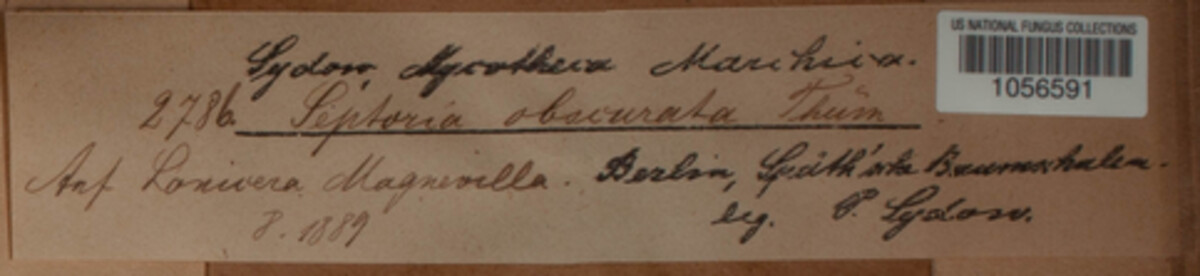 Sydow, Mycotheca Marchica.
2786. Septoria obscurata Thüm
Auf Lonicera Magnevillea. Berlin, Späth'sche Baumschulen.
8. 1889
leg. P. Sydow.
US NATIONAL FUNGUS COLLECTIONS
1056591